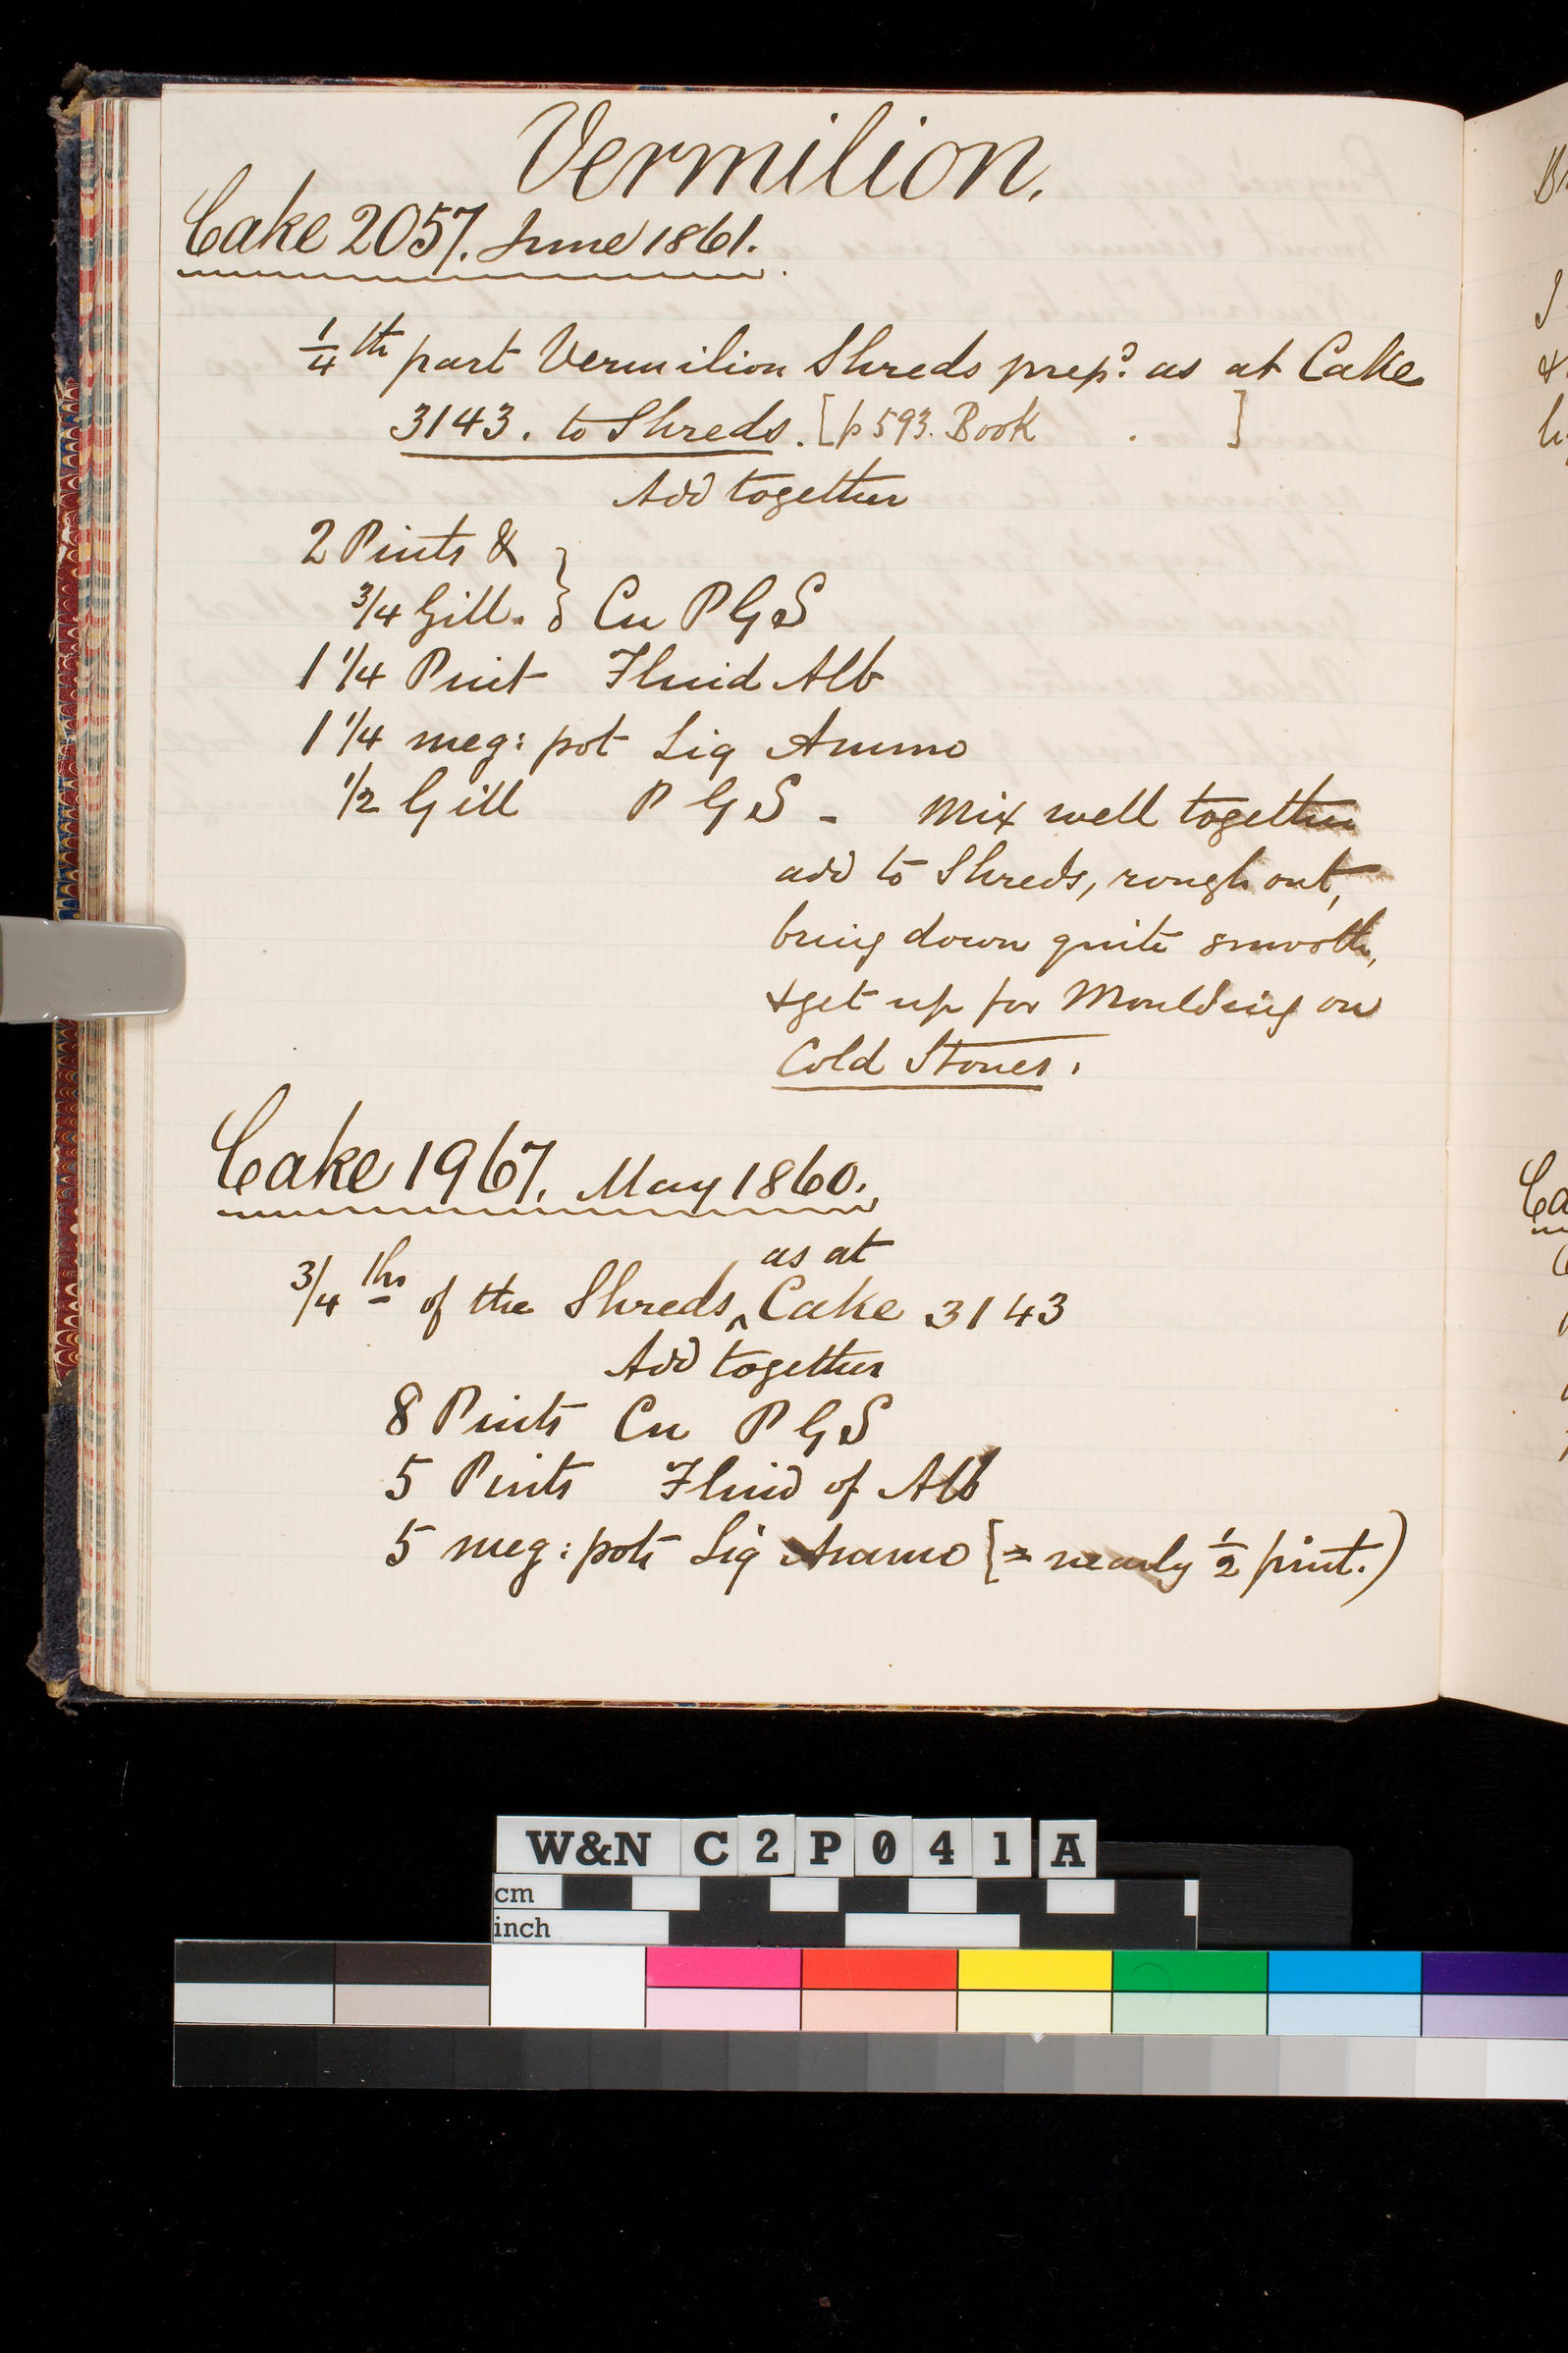 Vermilion.
Cake 2057. June 1861.
1/4 th part Vermilion Shreds prepd. as at Cake
3143. to Shreds. [p 593. Book . ]
Add together
2 Pints &
3/4 Gill. } Cu P G S
1 1/4 Pint Fluid Alb
1 1/4 meg: pot Liq Ammo
1/2 Gill P G S - Mix well together
add to Shreds, rough out,
bring down quite smooth,
& get up for Moulding on
Cold Stones.
Cake 1967. May 1860.
as at
3/4 ths of the Shreds ^ Cake 3143
Add together
8 Pints Cu P G S
5 Pints Fluid of Alb
5 meg: pots Liq Ammo [= nearly 1/2 pint.)
W&N C2P041A
cm
inch